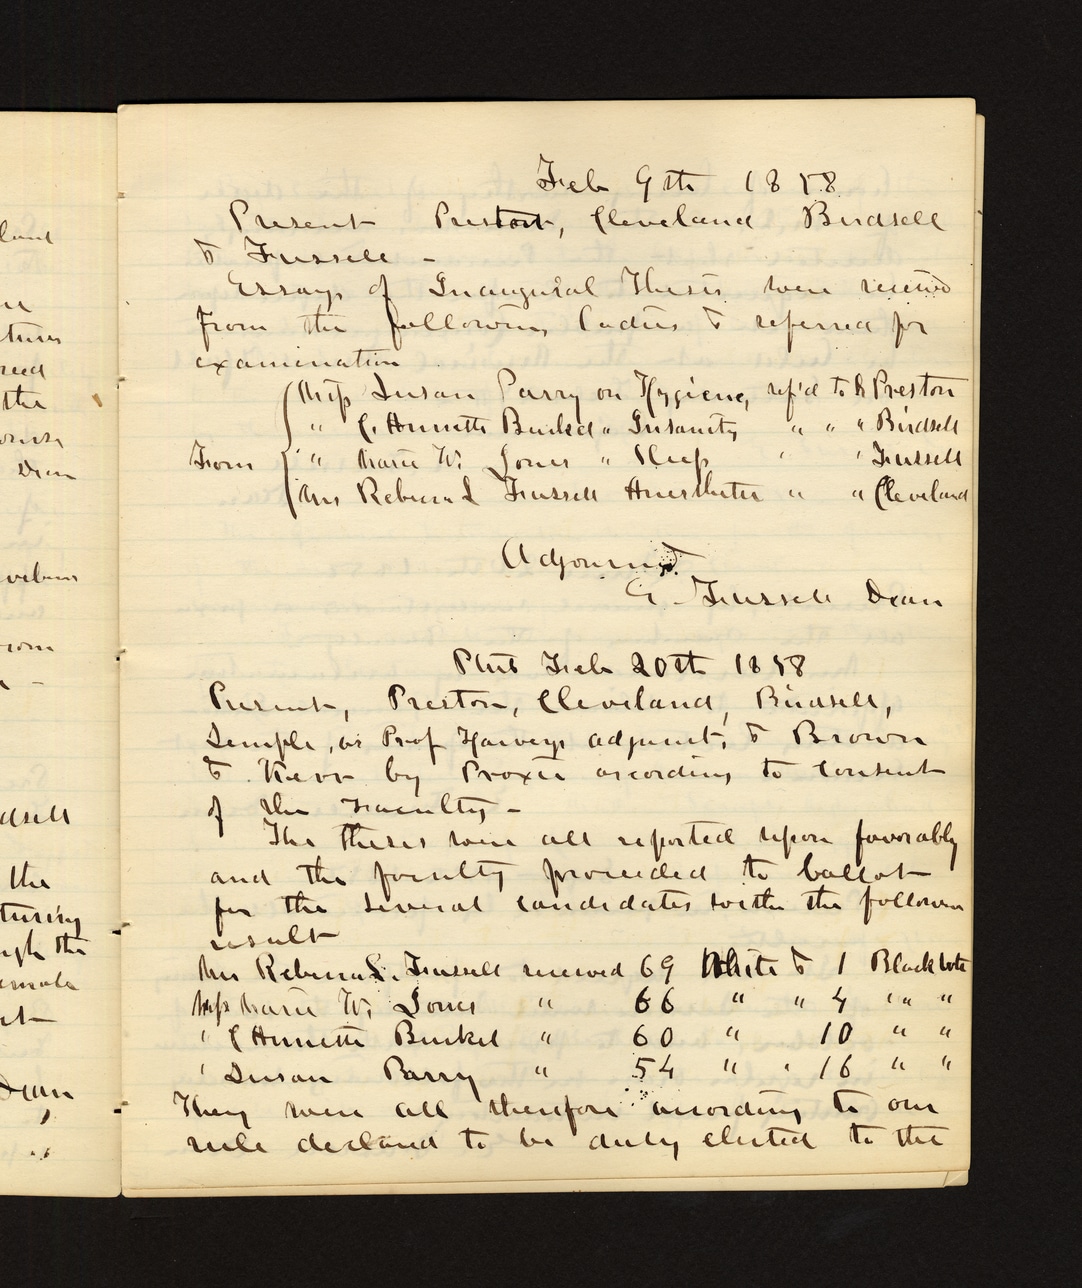 Feb 9th 1858
Present Preston, Cleveland Birdsell
& Fussell -
Essays of Inaugural Theses were received
from the following ladies & referred for
examination
Miss Susan Parry on Hygiene, ref'd to Preston
" C. Annette Buckel " Insanity " " " Birdsell
From " Marie W. Jones " Sleep " " Fussell
Mrs Rebecca L Fussell Anesthetics " " Cleveland
Adjourned
E. Fussell Dean
Phil Feb 20th 1858
Present, Preston, Cleveland, Birdsell,
Semple, as Prof Harveys adjunct, & Brown
& Kerr by Proxie according to consent
of the Faculty -
The theses were all reported upon favorably
and the faculty proceeded to ballot
for the several candidates with the following
result
Mrs Rebecca L. Fussell received 69 White & 1 Black vote
Miss Marie W. Jones " 66 " " 4 " "
" C Annette Buckel " 60 " 10 " "
" Susan Parry " 54 " " 16 " "
They were all therefore according to our
rule declared to be duly elected to the
land
tures
reed
the
Dean
dsell
the
the
Dean